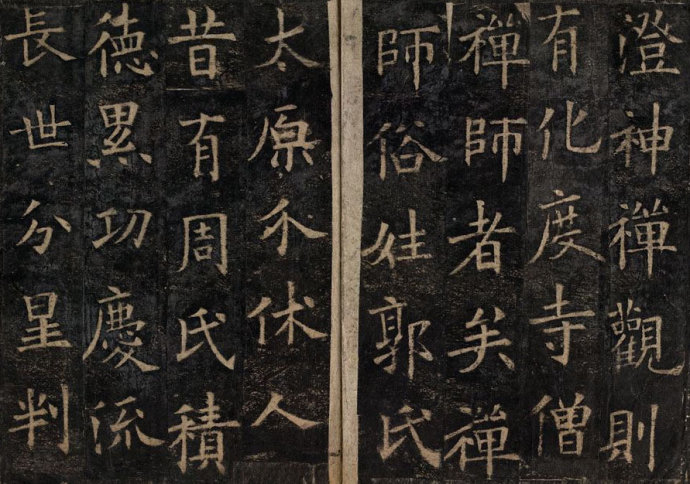 澄神禪觀則
有化度寺僧
禪師者矣禪
師俗姓郭氏
太原介休人
昔有周氏積
德累功慶流
長世分星判